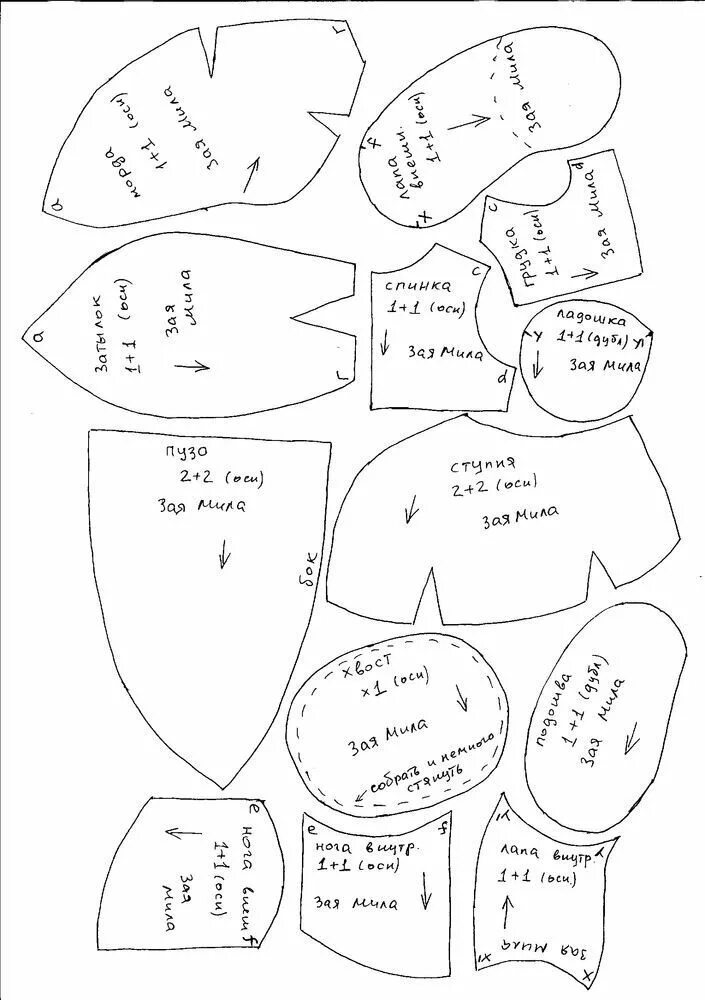 г
морда
1+1 (оси)
Зая Мила
а
Лапа
внешн.
1+1 (оси)
Зая Мила
х
'х
с
d
Грудка
1+1 (оси)
Зая Мила
Затылок
1+1 (оси)
Зая
Мила
а
г
спинка
1+1 (оси)
Зая Мила
с
d
ладошка
1+1 (дубл)
Зая Мила
у
у'
пузо
2+2 (оси)
Зая Мила
бок
ступня
2+2 (оси)
Зая Мила
хвост
х1 (оси)
Зая Мила
собрать и немного
стянуть
подошва
1+1 (дубл)
Зая Мила
е
нога внеш
1+1 (оси)
Зая
Мила
f
е
f
нога внутр.
1+1 (оси)
Зая Мила
у'
у
лапа внутр.
1+1 (оси)
Зая Мила
х'
х